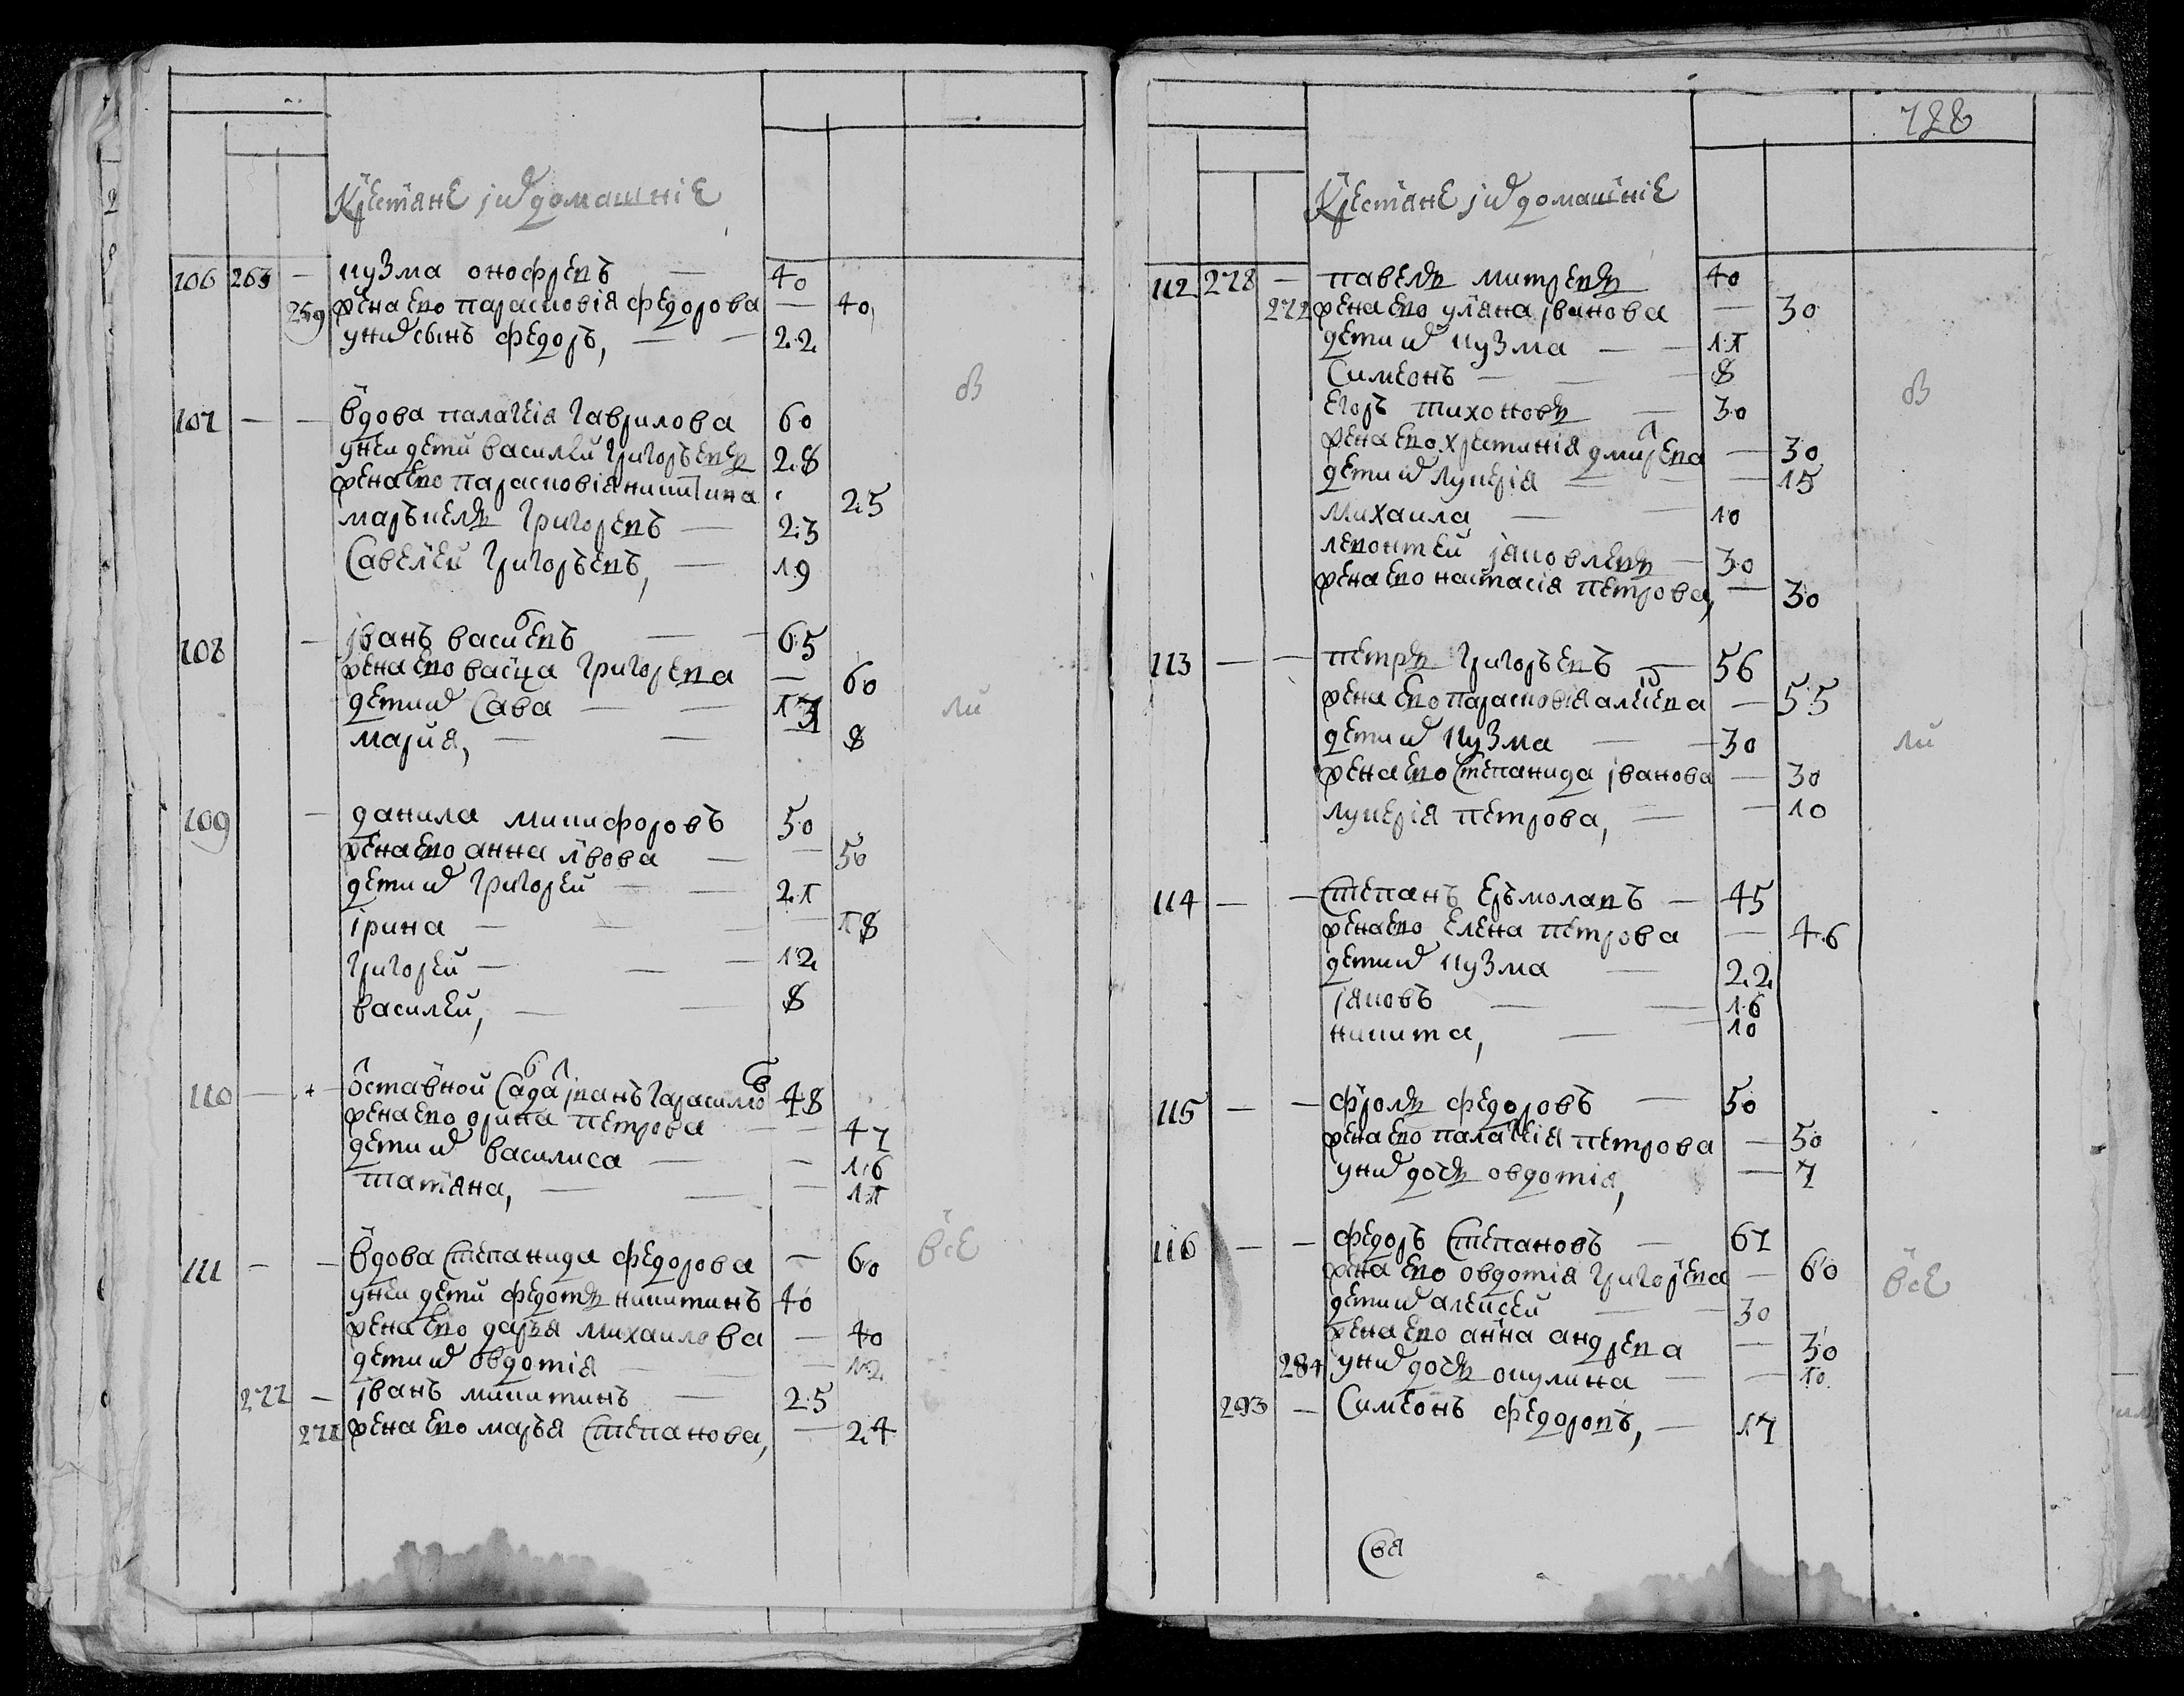 Крестяне и их домашние
106 263 — кузма онофреевъ — 40
259 жена ево парасковия федорова — 40
у них сынъ федоръ, — — 22
об
107 — — вдова палагея гаврилова 60
у неи дети василеи григорьевъ 28
жена ево парасковия никитина 25
маркелъ григоревъ — 23
Савелеи григорьевъ, — 19
108 — иванъ василевъ — — 65
жена ево васица григорева — 60
дети их Сава — — 13
мария, — — 8
ли
109 — данила микифоровъ 50
жена ево анна лвова — — 50
дети их григореи — — 21
ирина — — — — 18
григореи — — — 12
василеи, — — 8
110 — — отставной Садат иванъ гарасимов 48
жена ево орина петрова — — 47
дети их василиса — — 16
татяна, — — — 11
111 — — вдова степанида федорова — 60
все
у неи дети федотъ никитинъ 40
жена ево даря михаилова — 40
дети их овдотия — — 12
277 — иванъ микитинъ — 25
271 жена ево маря степанова, — 24
728
Крестяне и их домашние
112 278 — павелъ митревъ 40
272 жена ево уляна иванова — 30
дети их кузма — — 11
Симеонъ — — — 8
егоръ тихоновъ — 30
об
жена ево хрестиния дмитрева — 30
дети их лукерия — — — 15
михаила — — 10
левонтеи яковлевъ — 30
жена ево настасия петрова, — 30
113 — — петръ григорьевъ — 56
жена ево парасковия алексева — 55
дети их кузма — — 30
ли
жена ево степанида иванова — 30
лукерия петрова, — — 10
114 — — степанъ ерьмолаевъ — 45
жена ево елена петрова — 46
дети их кузма — 22
яковъ — — 16
никита, — — 10
115 — — фролъ федоровъ — 50
жена ево палагея петрова — 50
у них дочь овдотия, — 7
116 — — федоръ степановъ — 67
жена ево овдотия григорева — 60
все
дети их алексеи — — 30
жена ево анна андрева — 30
284 у них дочь окулина — — 10
293 — Симеонъ федоровъ, — 17
Свя